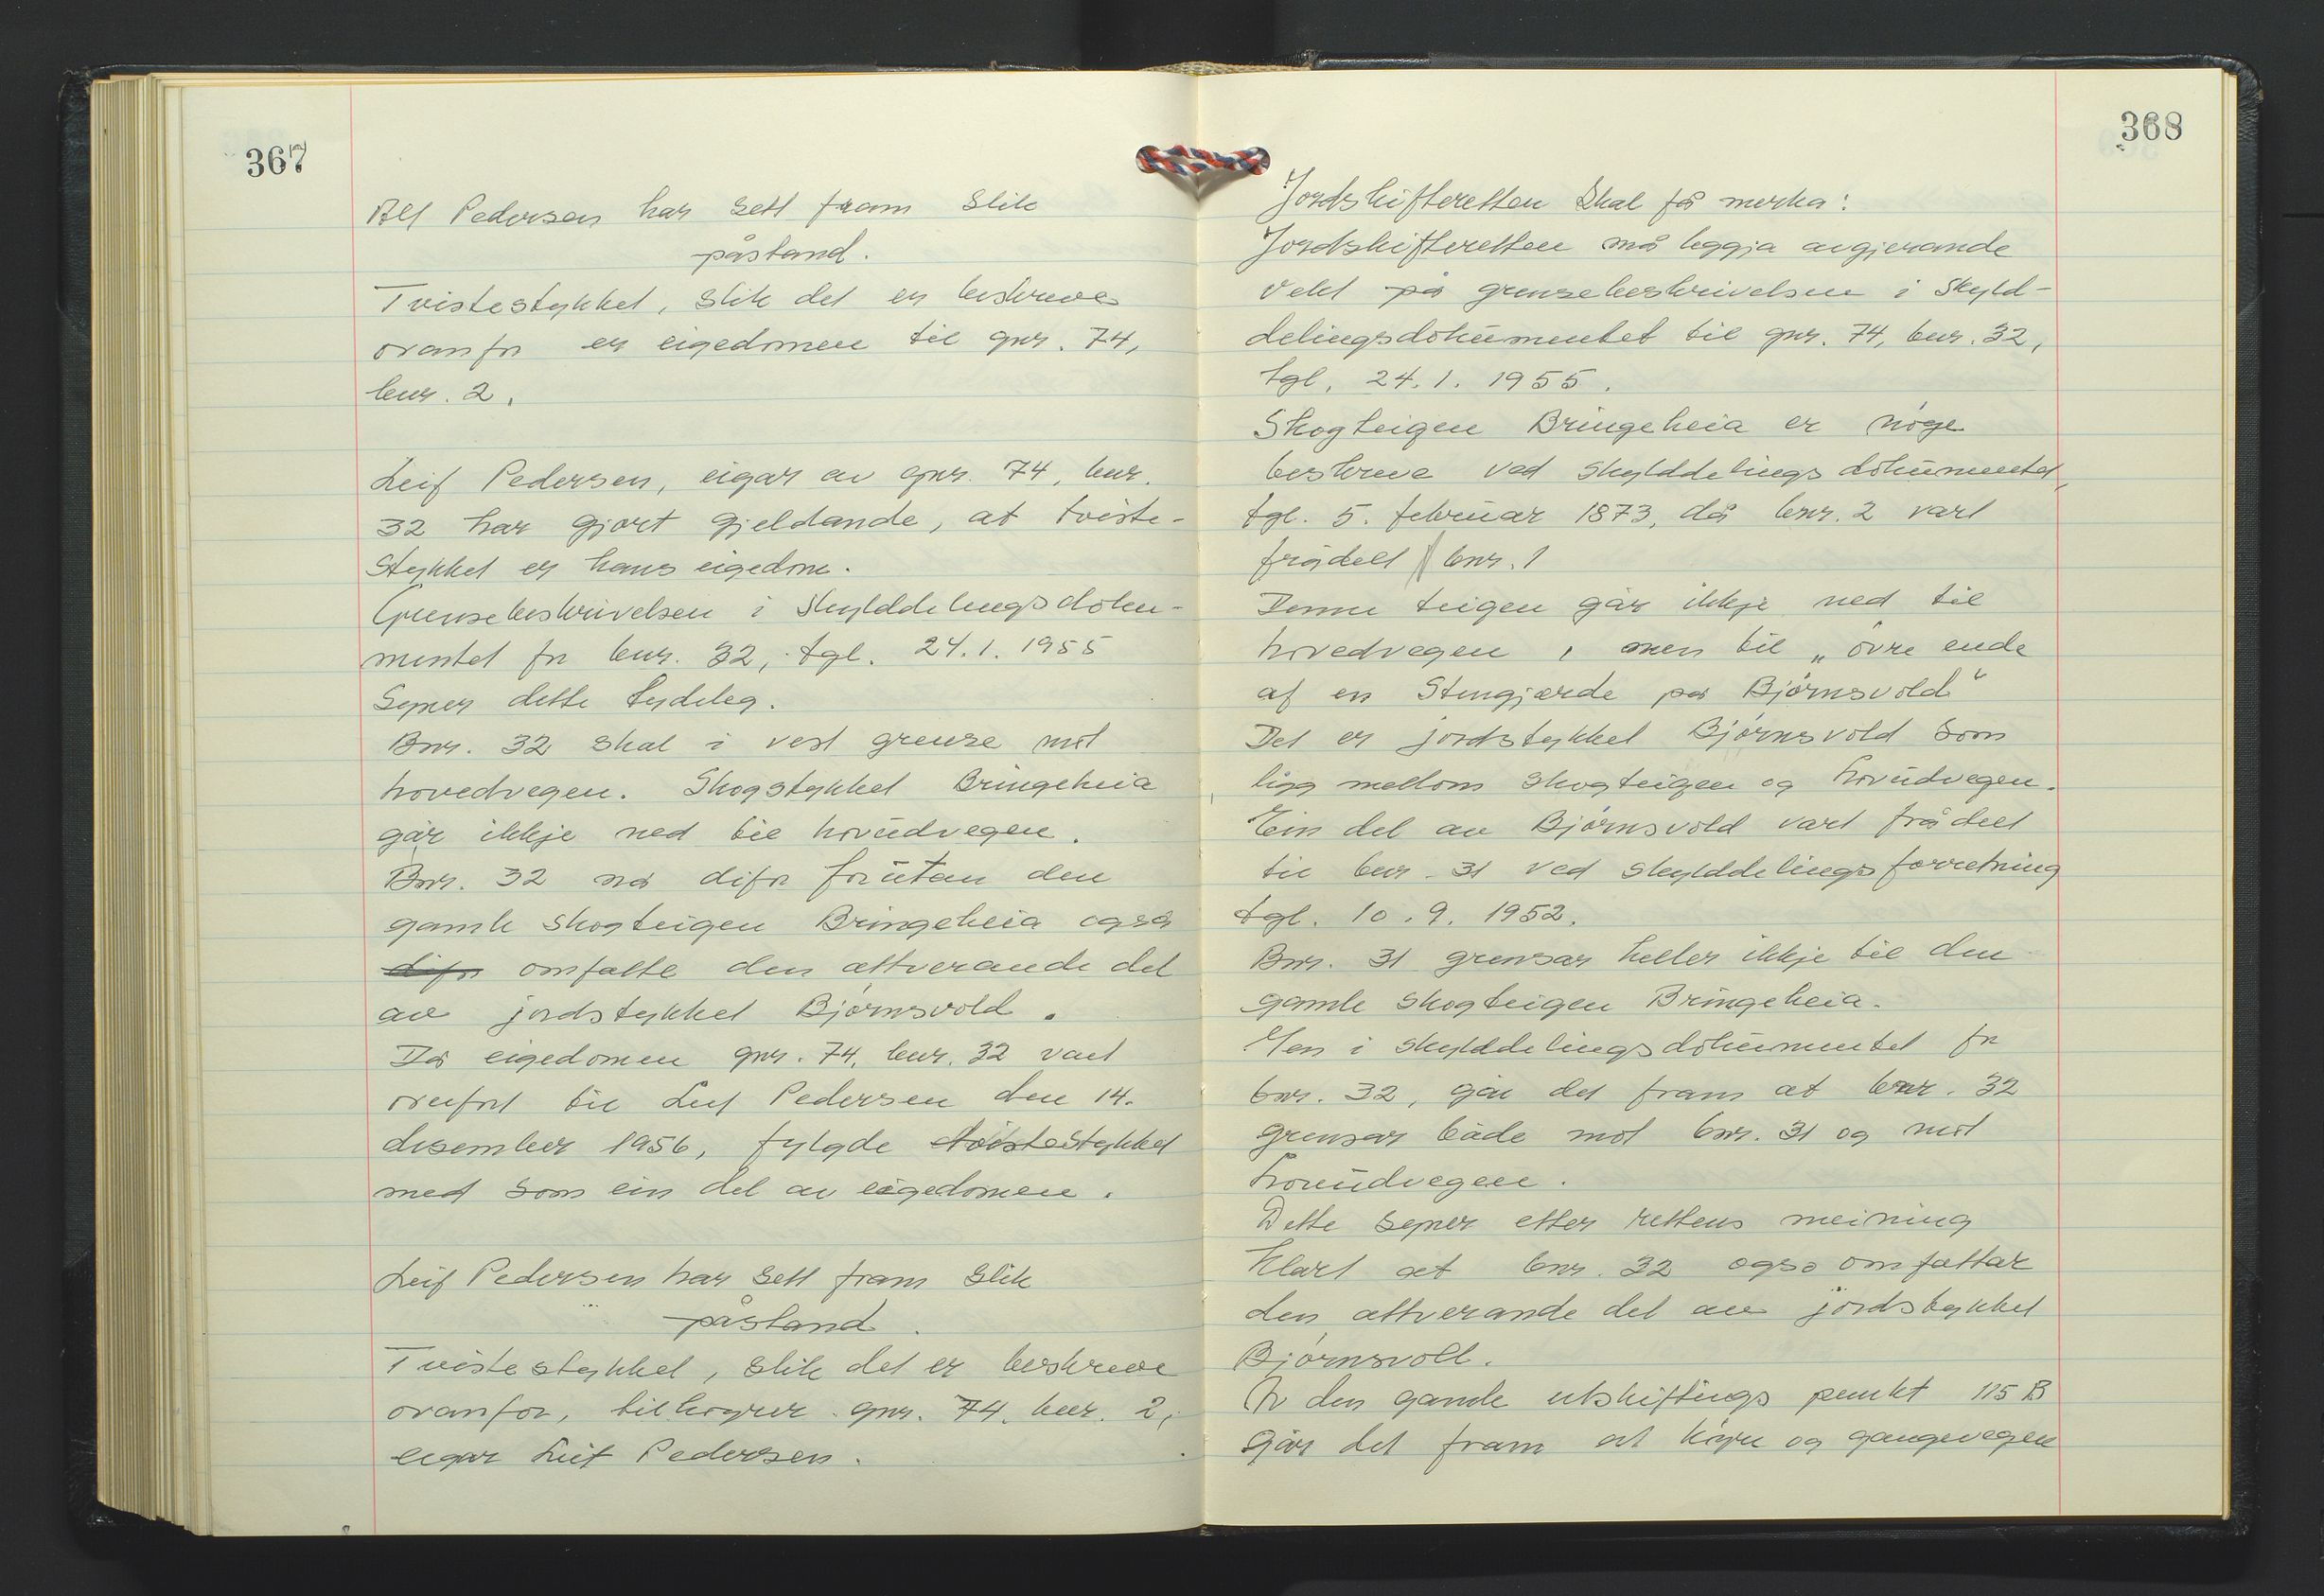 367
Alf Pedersen har sett fram slik
påstand.
Tvistestykket, slik det er beskreve
ovanfor er eigedomen til gnr. 74,
bnr. 2.
Leif Pedersen, eigar av gnr. 74, bnr.
32 har gjort gjeldande, at tviste-
stykket er hans eigedom.
Grensebeskrivelsen i skylddelingsdoku-
mentet for bnr. 32, tgl. 24.1.1955
syner dette tydeleg.
Bnr. 32 skal i vest grense mot
hovedvegen. Skogstykket Bringeheia
går ikkje ned til hovudvegen.
Bnr. 32 må difor forutan den
gamle skogteigen Bringeheia også
difor omfatte den attverande del
av jordstykket Bjørnsvold.
Då eigedomen gnr. 74, bnr. 32 vart
overført til Leif Pedersen den 14.
desember 1956, fylgde tvistestykket
med som ein del av eigedomen.
Leif Pedersen har sett fram slik
påstand.
Tvistestykket, slik det er beskreve
ovanfor, tilhøyrer gnr. 74, bnr. 2,
eigar Leif Pedersen.
368
Jordskifteretten skal få merka:
Jordskifteretten må leggja avgjerande
vekt på grensebeskrivelsen i skyld-
delingsdokumentet til gnr. 74, bnr. 32,
tgl. 24.1.1955.
Skogteigen Bringeheia er nøge
beskreve ved skylddelingsdokumentet,
tgl. 5. februar 1873, då bnr. 2 vart
frådelt bnr. 1
Denne teigen går ikkje ned til
hovedvegen, men til "øvre ende
af en Stengjærde på Bjørnsvold"
Det er jordstykket Bjørnsvold som
ligg mellom skogteigen og hovudvegen.
Ein del av Bjørnsvold vart frådelt
til bnr. 31 ved skylddelingsforretning
tgl. 10.9.1952.
Bnr. 31 grensar heller ikkje til den
gamle skogteigen Bringeheia.
Men i skylddelingsdokumentet for
bnr. 32, går det fram at bnr. 32
grensar både mot bnr. 31 og mot
hovudvegen.
Dette syner etter rettens meining
klart at bnr. 32 også omfattar
den attverande del av jordstykket
Bjørnsvoll.
Av den gamle utskiftings punkt 115 B
går det fram at køyre og gangevegen